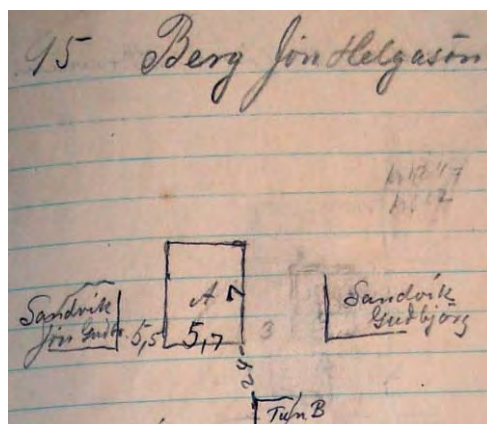 95 Berg Jón Helgason
A
7
Sandvík
Jón Guðbr.
5,5
5,7
3
Sandvík
Guðbjörg
24
Tun B